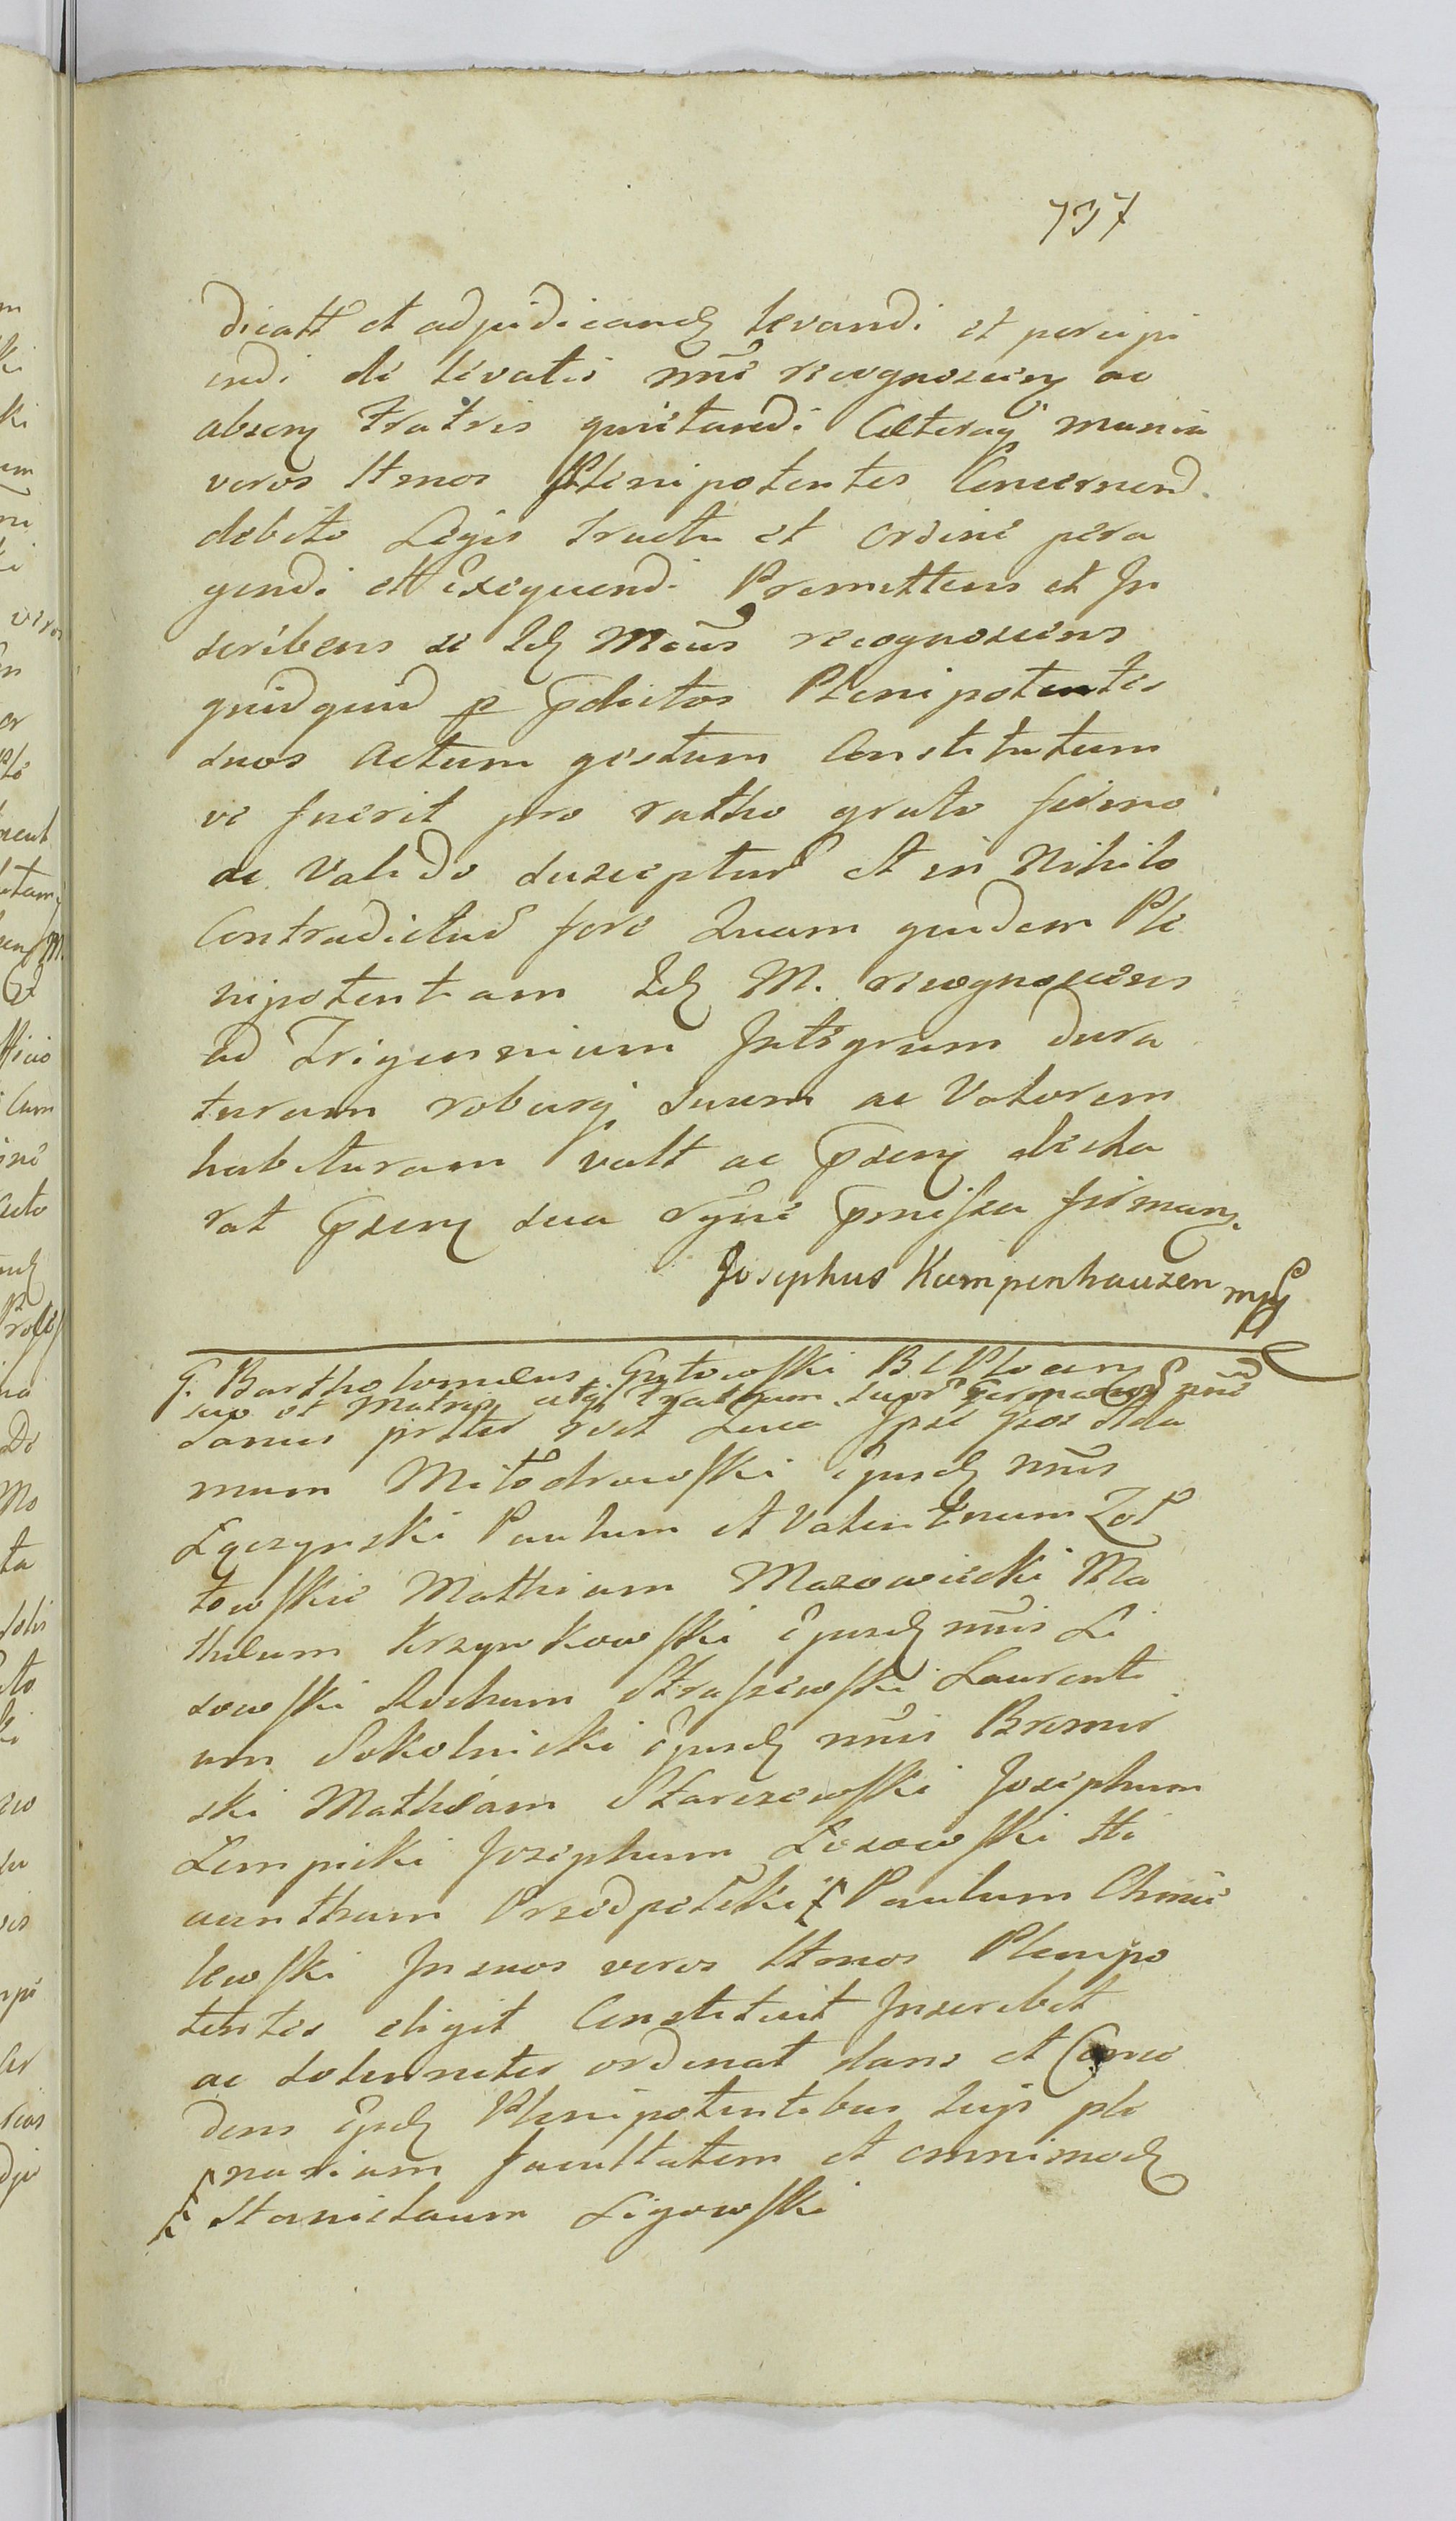 737
dicatt et adjudicand levandi et percipi
endi de levatis nnē recognoscen ac
absen Fratris quietandi Cæteraq munia
veros ltmos Plenipotentes Concernend
debito Legis tractu et ordine pera
gendi et exequendi Promittens et In
scribens se Id Mcus recognoscens
quidquid p pdictos Plenipotentes
suos actum gestum Constitutum
ve fuerit pro ratho grato firmo
ac valido suscepturū et in nihilo
Contradicturū fore Quam quidem Ple
nipotentiam Id M. recognoscens
ad Trigennium Integrum dura
turam roburq suum ac Valorem
habituram vult ac psen decla
rat psen sua Dgnē pmissa firman.
Josephus Kampenhauzen mp
G. Bartholomæus Gutowski B C Plocen
suo et Matris atq Fratrum suor Germanor nnē
sanus prter rect Luca Ipse Gsos Ada
mum Miłodrowski ejusd nnis
Łączynski Paulum et Valentinum Zol
towskie Mathiam Mazowiecki Ma
thæum Krzywkowski ejusd nnis Li
sowski Rochum Straszewski Laurenti
um Sokolnicki ejusd nnis Bromir
ski Mathiam Starczewski Josephum
Lempicki Josephum Lisowski Hi
acinthum Przedpełski Paulum Chmie
lewski In suos veros ltmos Plenipo
tentes eligit Constituit Inscribit
ac solenniter ordinat dans et Conce
dens ijsd Plenipotentibus suijs ple
nariam facultatem et omnimod
Stanislaum Ligowski